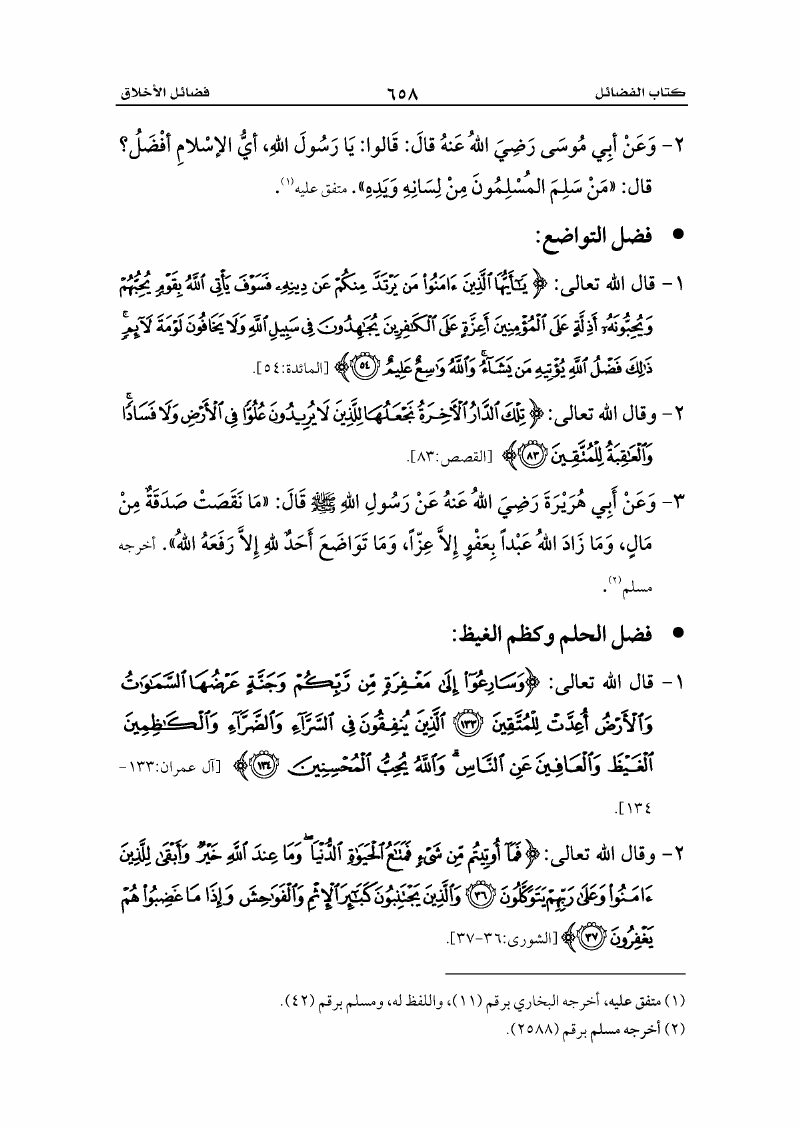 كتاب الفضائل ٦٥٨ فضائل الأخلاق
٢- وَعَنْ أبِي مُوسَى رَضِيَ اللهُ عَنهُ قالَ: قَالوا: يَا رَسُولَ اللهِ، أيُّ الإسْلامِ أفْضَلُ؟
قال: «مَنْ سَلِمَ المُسْلِمُونَ مِنْ لِسَانِهِ وَيَدِهِ». متفق عليه(١).
• فضل التواضع:
١- قال الله تعالى: ﴿يَٰٓأَيُّهَا ٱلَّذِينَ ءَامَنُوا۟ مَن يَرْتَدَّ مِنكُمْ عَن دِينِهِۦ فَسَوْفَ يَأْتِى ٱللَّهُ بِقَوْمٍ يُحِبُّهُمْ
وَيُحِبُّونَهُۥٓ أَذِلَّةٍ عَلَى ٱلْمُؤْمِنِينَ أَعِزَّةٍ عَلَى ٱلْكَٰفِرِينَ يُجَٰهِدُونَ فِى سَبِيلِ ٱللَّهِ وَلَا يَخَافُونَ لَوْمَةَ لَآئِمٍ ۚ
ذَٰلِكَ فَضْلُ ٱللَّهِ يُؤْتِيهِ مَن يَشَآءُ ۚ وَٱللَّهُ وَٰسِعٌ عَلِيمٌ ٥٤﴾ [المائدة:٥٤].
٢- وقال الله تعالى: ﴿تِلْكَ ٱلدَّارُ ٱلْءَاخِرَةُ نَجْعَلُهَا لِلَّذِينَ لَا يُرِيدُونَ عُلُوًّا فِى ٱلْأَرْضِ وَلَا فَسَادًا ۚ
وَٱلْعَٰقِبَةُ لِلْمُتَّقِينَ ٨٣﴾ [القصص:٨٣].
٣- وَعَنْ أَبِي هُرَيْرَةَ رَضِيَ اللهُ عَنهُ عَنْ رَسُولِ اللهِ ﷺ قَالَ: «مَا نَقَصَتْ صَدَقَةٌ مِنْ
مَالٍ، وَمَا زَادَ اللهُ عَبْداً بِعَفْوٍ إلاَّ عِزّاً، وَمَا تَوَاضَعَ أَحَدٌ للهِ إلاَّ رَفَعَهُ اللهُ». أخرجه
مسلم(٢).
• فضل الحلم وكظم الغيظ:
١- قال الله تعالى: ﴿وَسَارِعُوٓا۟ إِلَىٰ مَغْفِرَةٍ مِّن رَّبِّكُمْ وَجَنَّةٍ عَرْضُهَا ٱلسَّمَٰوَٰتُ
وَٱلْأَرْضُ أُعِدَّتْ لِلْمُتَّقِينَ ١٣٣ ٱلَّذِينَ يُنفِقُونَ فِى ٱلسَّرَّآءِ وَٱلضَّرَّآءِ وَٱلْكَٰظِمِينَ
ٱلْغَيْظَ وَٱلْعَافِينَ عَنِ ٱلنَّاسِ ۗ وَٱللَّهُ يُحِبُّ ٱلْمُحْسِنِينَ ١٣٤﴾ [آل عمران:١٣٣-
١٣٤].
٢- وقال الله تعالى: ﴿فَمَآ أُوتِيتُم مِّن شَىْءٍ فَمَتَٰعُ ٱلْحَيَوٰةِ ٱلدُّنْيَا ۖ وَمَا عِندَ ٱللَّهِ خَيْرٌ وَأَبْقَىٰ لِلَّذِينَ
ءَامَنُوا۟ وَعَلَىٰ رَبِّهِمْ يَتَوَكَّلُونَ ٣٦ وَٱلَّذِينَ يَجْتَنِبُونَ كَبَٰٓئِرَ ٱلْإِثْمِ وَٱلْفَوَٰحِشَ وَإِذَا مَا غَضِبُوا۟ هُمْ
يَغْفِرُونَ ٣٧﴾ [الشورى:٣٦-٣٧].
(١) متفق عليه، أخرجه البخاري برقم (١١)، واللفظ له، ومسلم برقم (٤٢).
(٢) أخرجه مسلم برقم (٢٥٨٨).